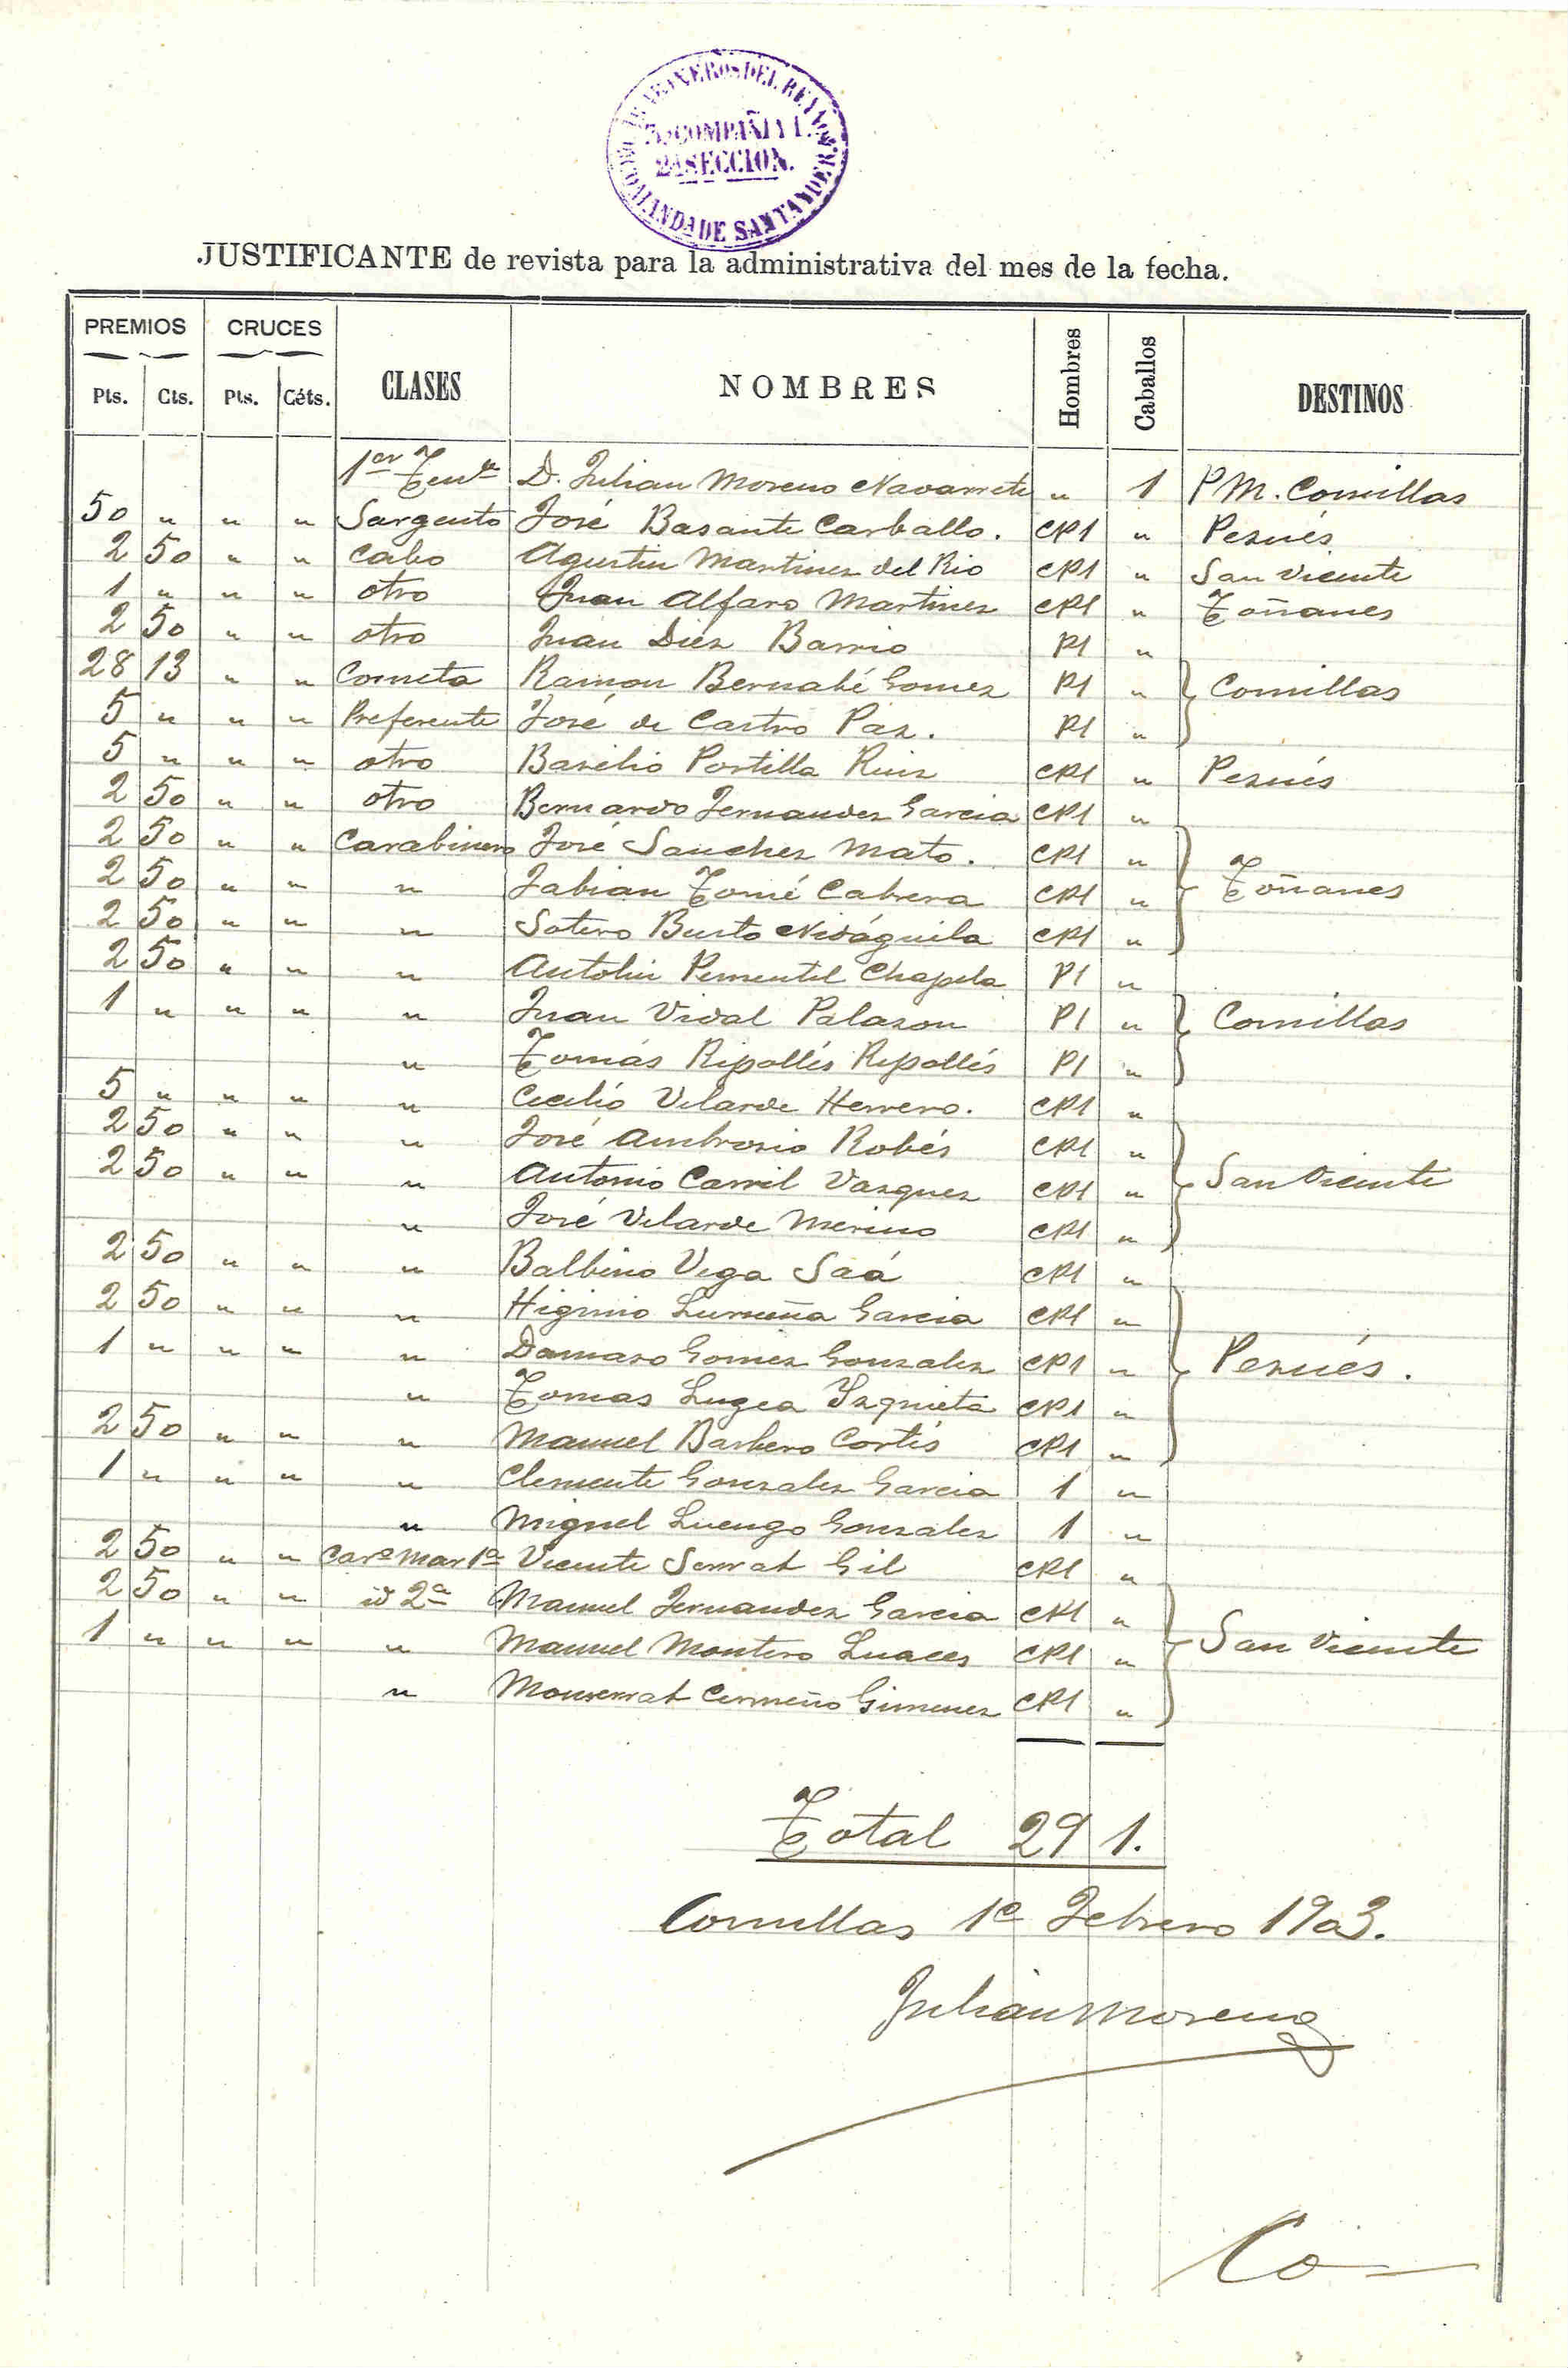 CARABINEROS DEL REYNO
5.ª COMPAÑIA
2ª SECCION.
COMANDA DE SANTANDER
JUSTIFICANTE de revista para la administrativa del mes de la fecha.
PREMIOS CRUCES CLASES NOMBRES Hombres Caballos DESTINOS
Pts. Cts. Pts. Céts.
1er Tente D. Julian Moreno Navarrete " 1 P M. Comillas
50 " " " Sargento José Basante Carballo. CP1 " Pesués
2 50 " " Cabo Agustin Martinez del Rio CP1 " San Vicente
1 " " " otro Juan Alfaro Martinez CP1 " Toñanes
2 50 " " otro Juan Diez Barrio P1 "
28 13 " " Corneta Ramon Bernabé Gomez P1 " Comillas
5 " " " Preferente José de Castro Paz. P1 "
5 " " " otro Basilio Portilla Ruiz CP1 " Pesués
2 50 " " otro Bernardo Fernandez Garcia CP1 "
2 50 " " Carabinero José Sanchez Mato. CP1 "
2 50 " " " Fabian Tomé Cabrera CP1 " Toñanes
2 50 " " " Sotero Busto Nidáguila CP1 "
2 50 " " " Antolin Pementel Chapela P1 "
1 " " " " Juan Vidal Palazon P1 " Comillas
" Tomás Ripollés Ripollés P1 "
5 " " " " Cecilio Velarde Herrero. CP1 "
2 50 " " " José Ambrosio Robés CP1 "
2 50 " " " Antonio Carril Vazquez CP1 " San Vicente
" José Velarde Merino CP1 "
2 50 " " " Balbino Vega Saá CP1 "
2 50 " " " Higinio Garcia CP1 "
1 " " " " Damaso Gomez Gonzalez CP1 " Pesués.
" Tomas Lugea Yzquieta CP1 "
2 50 " " " Manuel Barbero Cortés CP1 "
1 " " " " Clemente Gonzalez Garcia 1 "
" Miguel Luengo Gonzalez 1 "
2 50 " " Caro Mar 1ª Vicente Serrat Gil CP1 "
2 50 " " id 2ª Manuel Fernandez Garcia CP1 "
1 " " " " Manuel Montero Luaces CP1 " San Vicente
" Monserrat Cermeño Gimenez CP1 "
Total 29 1.
Comillas 1º Febrero 1903.
Julian Moreno
Co